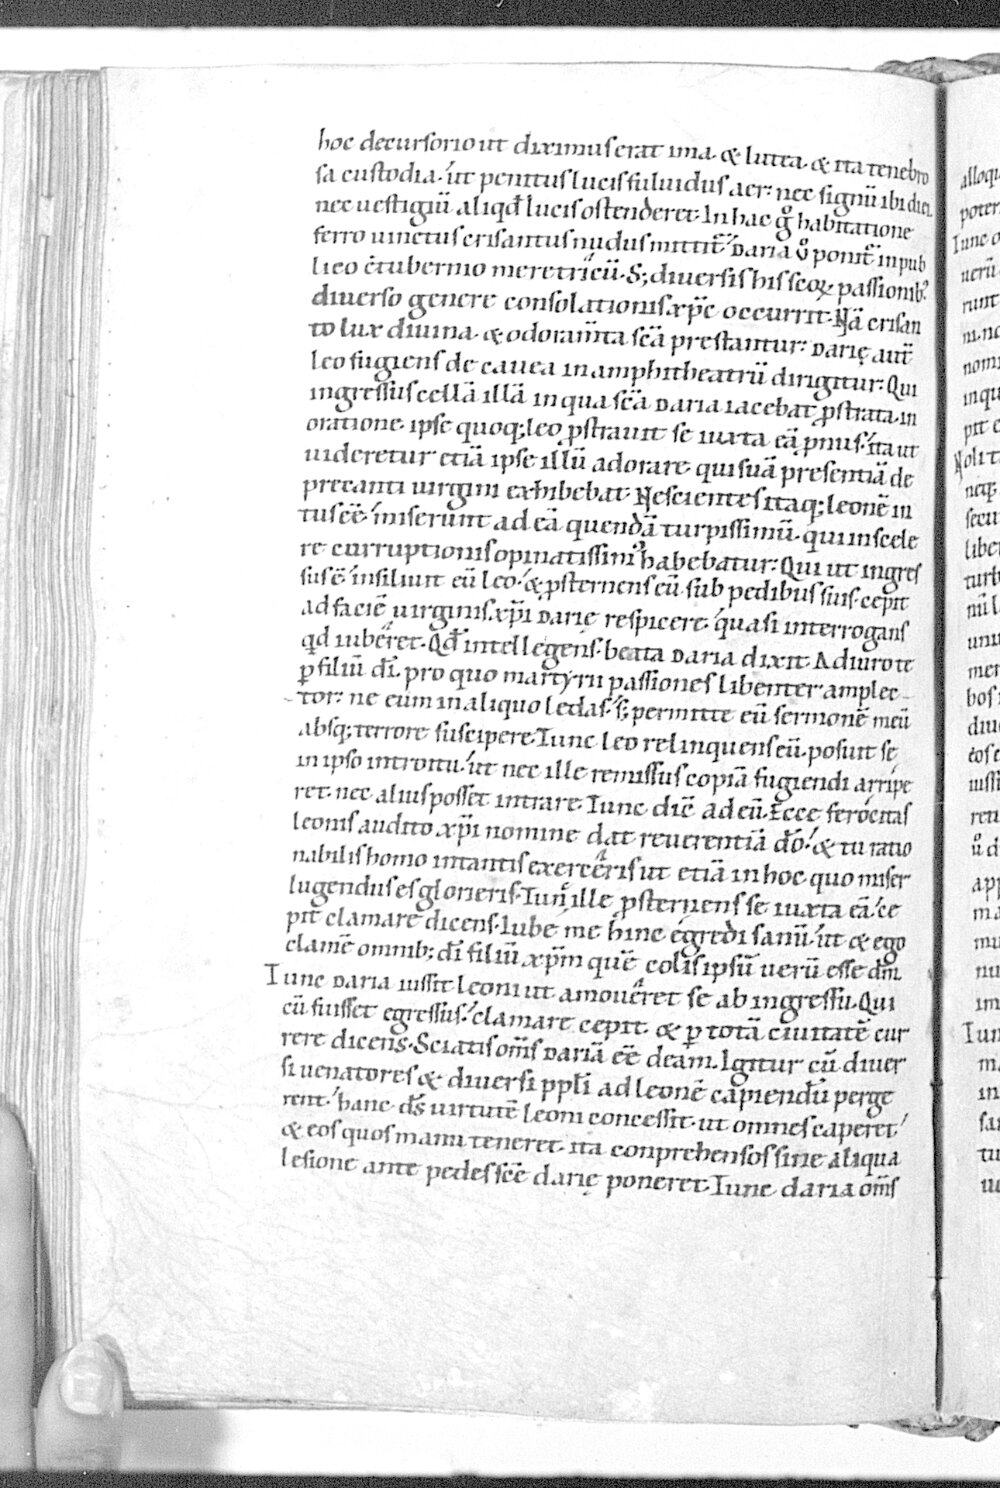 hoc decursorio ut diximus erat ima. & lutea. & ita tenebro
sa custodia. ut penitus lucis fuluidus aer. nec signū ibi diei.
nec uestigiū aliqđ lucis ostenderet. In hac gͦ habitatione
ferro uinctus crisantus nudus mittit᷑. Daria ů ponit᷑ in pub
lico c̄tubernio meretricū. S; diuersis his scoꝝ passionib;
diuerso genere consolationis xp̄c occurrit. Nā crisan
to lux diuina. & odoram̄ta scā prestantur. Darię aut̄
leo fugiens de cauea in amphitheatrū dirigitur. Qui
ingressus cellā illā in qua scā Daria iacebat ꝓstrata in
oratione. ipse quoq; leo ꝓstrauit se iuxta eā pͥmus. ita ut
uideretur etiā ipse illū adorare. qui suā presentiā de
precanti uirgini exhibebat. Nescientes itaq; leonē in
tus eē. īmiserunt ad eā quendā turpissimū. qui in scele
re curruptionis opinatissimꝰ habebatur. Qui ut ingres
sus ē. insiliuit eū leo. & ꝓsternens eū sub pedibus suis. cepit
ad faciē uirginis xp̄i Darię respicere. quasi interrogans
qd iuberet. Qđ intellegens beata Daria dixit. Adiuro te
ꝑ filiū di. pro quo martyrii passiones libenter amplec
tor. ne eum in aliquo ledas. s; permitte eū sermonē meū
absq; terrore suscipere. Tunc leo relinquens eū. posuit se
in ipso introitu. ut nec ille remissus copiā fugiendi arripe
ret. nec alius posset intrare. Tunc dic̄ ad eū. Ecce ferocitas
leonis audito xp̄i nomine dat reuerentiā dō. & tu ratio
nabilis homo in tantis exerceris ut etiā in hoc quo miser
lugendus es glorieris. Tunͨ ille ꝓsternens se iuxta eā. ce
pit clamare dicens. Iube me hinc egredi sanū. ut & ego
clamē omnib; di filiū xp̄m quē colis ipsū uerū esse dm̄.
Tunc Daria iussit leoni ut amoueret se ab ingressu. Qui
cū fuisset egressus. clamare cepit. & ꝑ totā ciuitatē cur
rere dicens. Sciatis om̄s Dariā eē deam. Igitur cū diuer
si uenatores & diuersi ppli ad leonē capiendū perge
rent. hanc ds̄ uirtutē leoni concessit. ut omnes caperet.
& eos quos manu teneret. ita conprehensos sine aliqua
lesione ante pedes scē darię poneret. Tunc daria om̄s